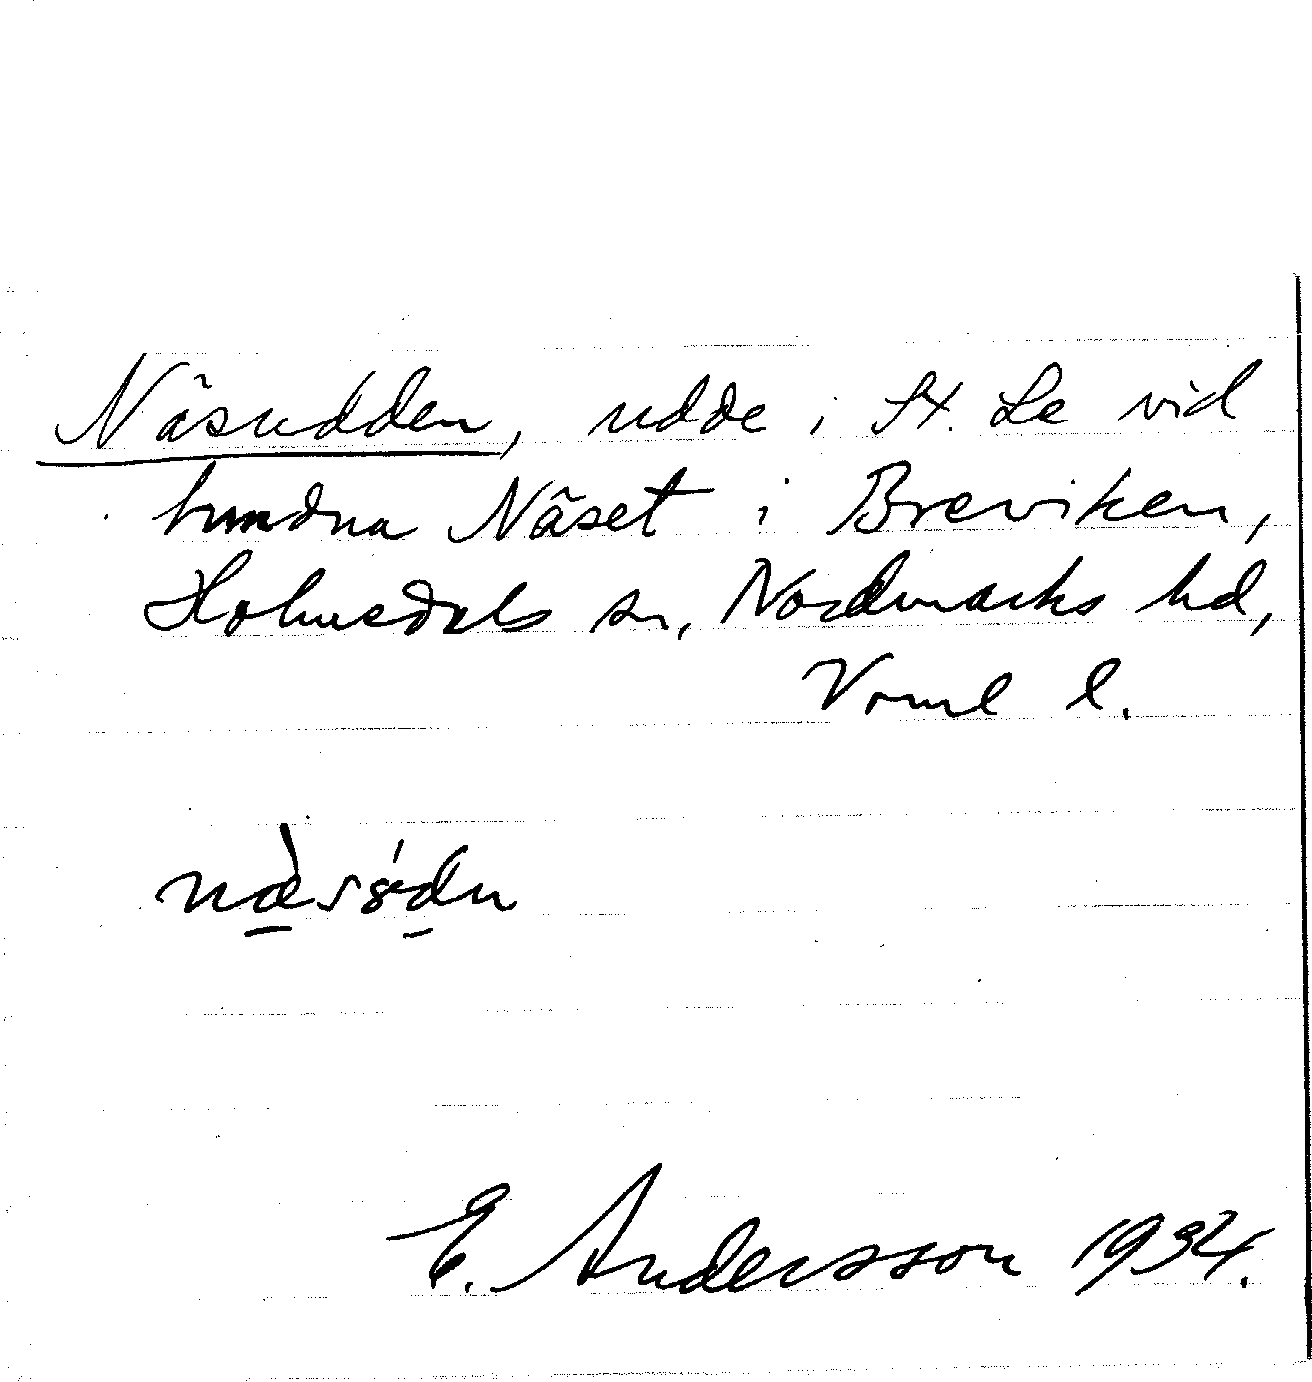 Näsudden, udde i St. Le vid
hmdna Näset i Breviken,
Holmedals sn, Nordmarks hd,
Vrml l.
E. Andersson 1934.